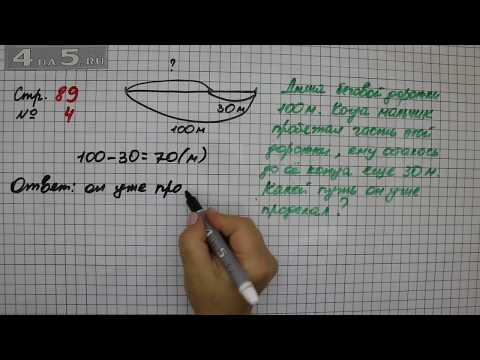 4 на 5.ru
Стр. 89
№ 4
?
30 м
100 м
100-30=70(м)
Ответ: он уже про
Длина беговой дорожки
100 м. Когда мальчик
пробежал часть этой
дорожки, ему осталось
до её конца ещё 30 м.
Какой путь он уже
проделал?
4 5